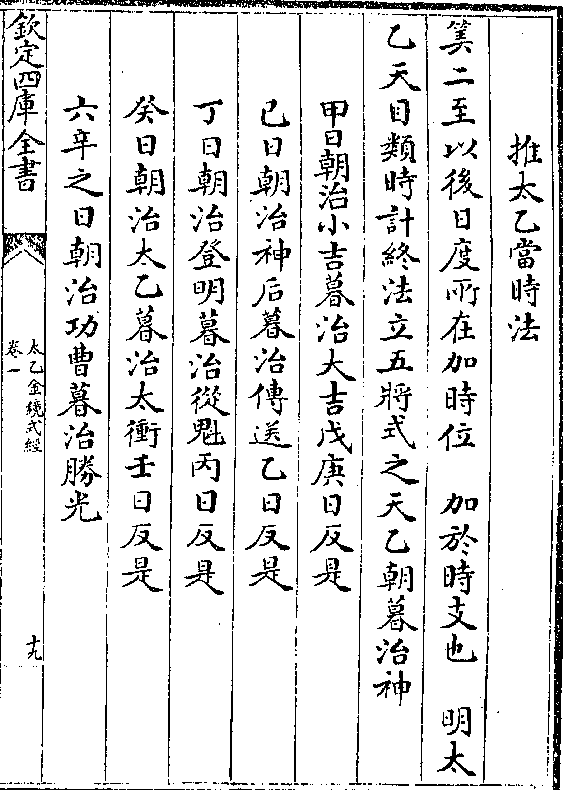 推太乙當時法
筭二至以後日度所在加時位　加於時支也　明太
乙天目類時計終法立五將式之天乙朝暮治神
甲日朝治小吉暮治大吉戊庚日反是
己日朝治神后暮治傳送乙日反是
丁日朝治登明暮治從魁丙日反是
癸日朝治太乙暮治太衝壬日反是
六辛之日朝治功曹暮治勝光
欽定四庫全書
太乙金鏡式經
卷一
十九